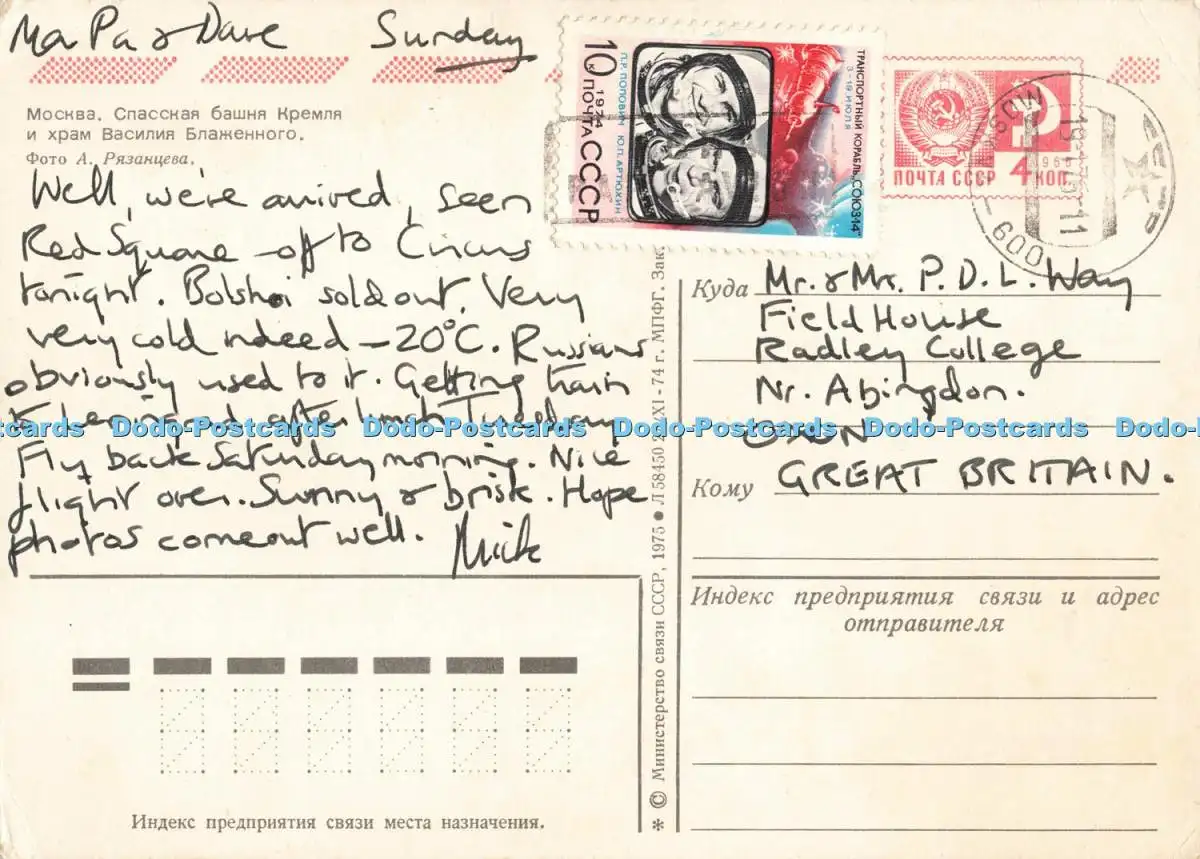 Ma Pa & Dave Sunday
Москва. Спасская башня Кремля
и храм Василия Блаженного.
Фото А. Рязанцева.
Well, we're arrived, seen
Red Square - off to Circus
tonight. Bolshoi sold out. Very
very cold indeed -20°C. Russians
obviously used to it. Getting train
to Leningrad after lunch Tuesday
Fly back Saturday morning. Nice
flight over. Sunny & brisk. Hope
photos come out well. Mick
10 К ПОЧТА СССР
1974
П.Р. ПОПОВИЧ Ю.П. АРТЮХИН
ТРАНСПОРТНЫЙ КОРАБЛЬ „СОЮЗ-14"
3-19 ИЮЛЯ
ПОЧТА СССР 4 КОП
1966
600
Куда Mr. & Mrs. P. D. L. Way
Field House
Radley College
Nr. Abingdon.
OXON
Кому GREAT BRITAIN.
Индекс предприятия связи и адрес
отправителя
Индекс предприятия связи места назначения.
* © Министерство связи СССР, 1975 ● Л 58450 XI - 74 г. МПФГ. Зак.
Dodo-Postcards Dodo-Postcards Dodo-Postcards Dodo-Postcards